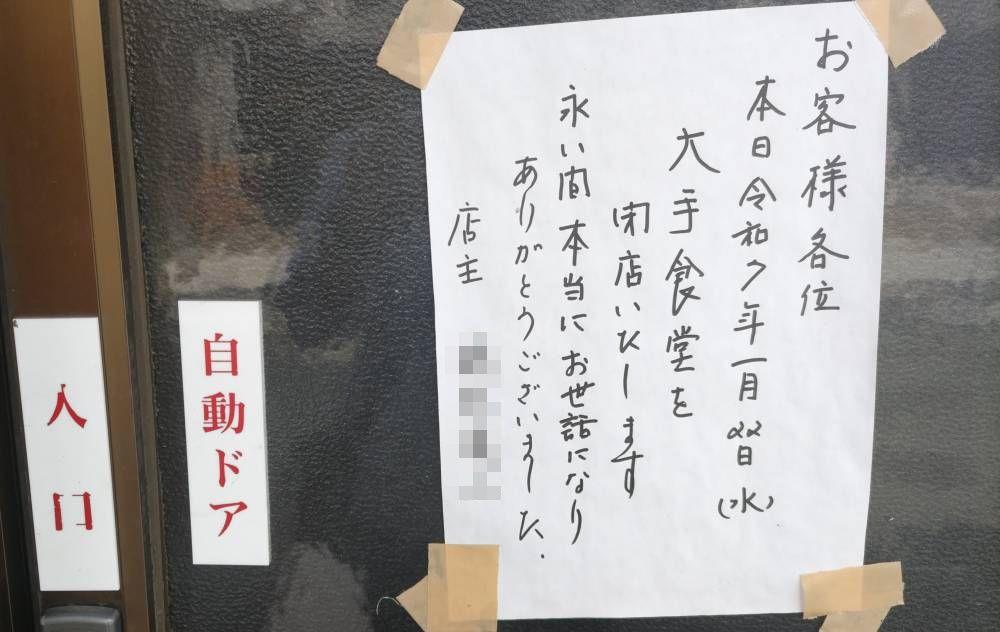 お客様各位
本日令和7年一月22日(水)
大手食堂を
閉店いたします
永い間本当にお世話になり
ありがとうございました.
店主
自動ドア
入口